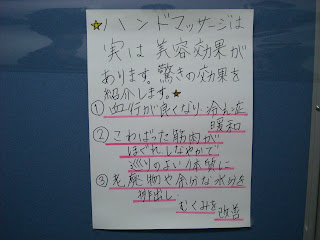 ★ハンドマッサージは
実は美容効果が
あります。驚きの効果を
紹介します。★
①血行が良くなり冷え症
暖和
②こわばった筋肉が
ほぐれしなやかで
巡りのよい体質に
③老廃物や余分な水分を
排出し
むくみを改善